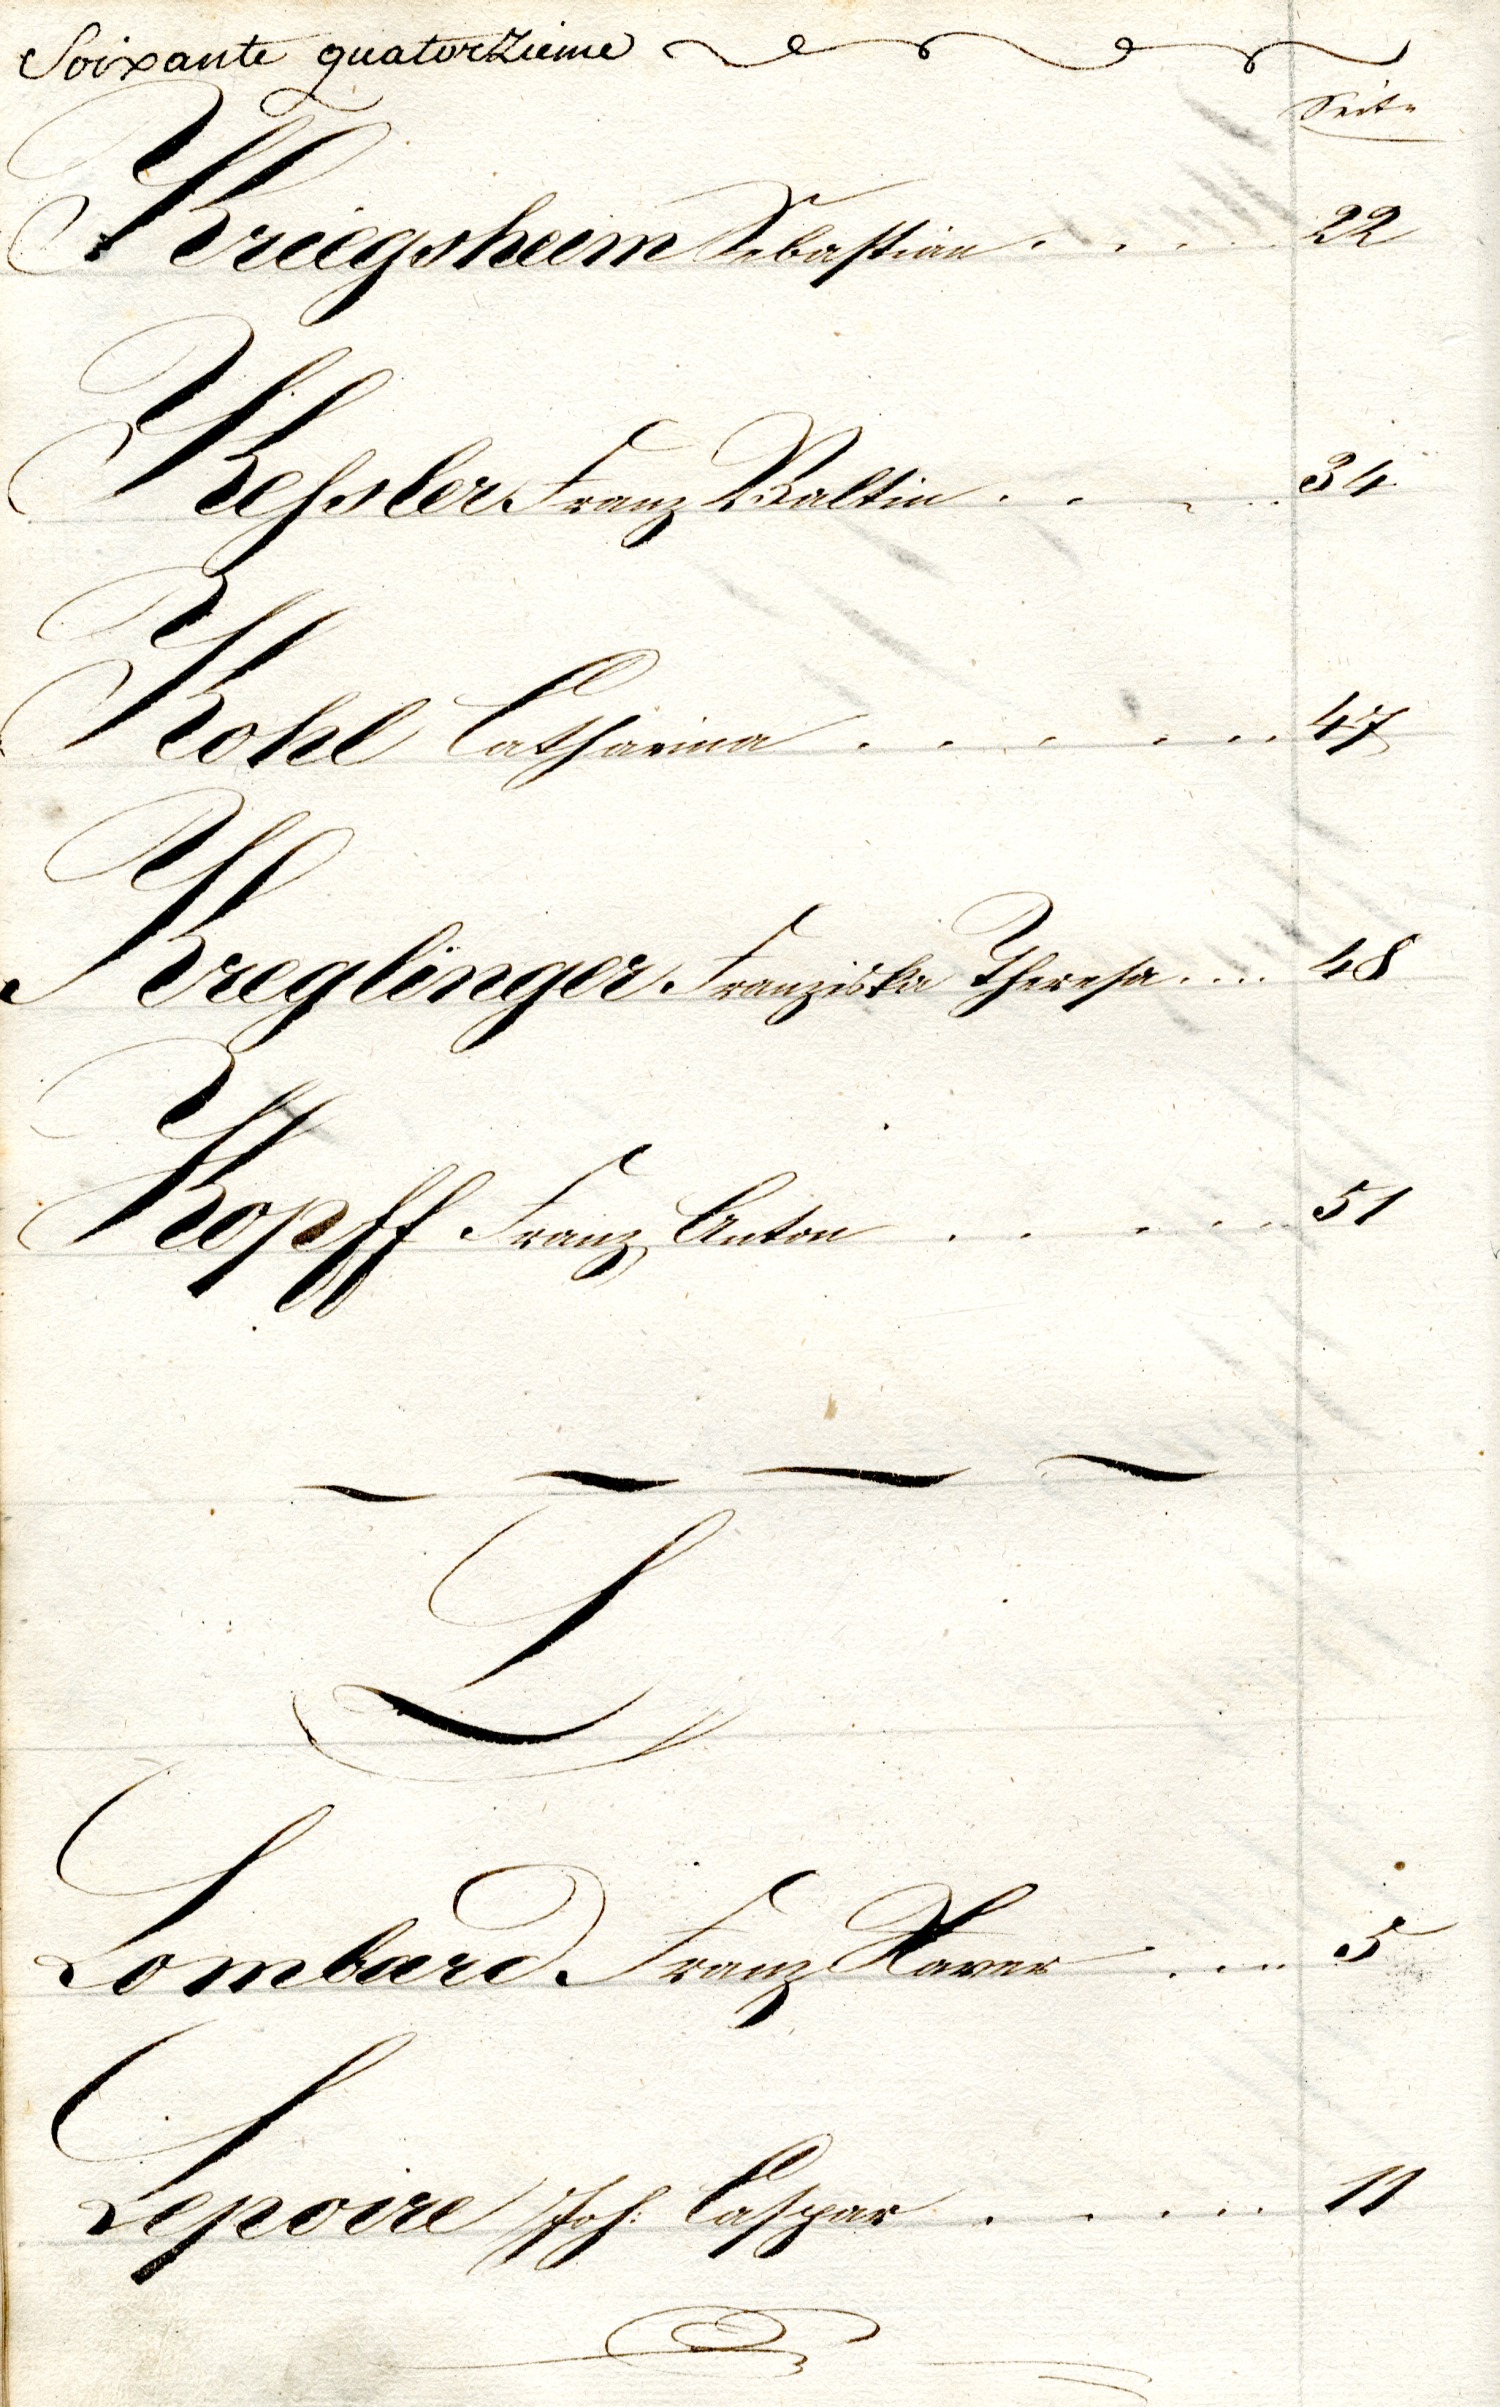 Soixante quatorzieme
Seite
Kriegsheim Sebastian . . . . 22
Kessler Franz Valtin . . . . 34
Kohl Catharina . . . . . . 47
Kreglinger Franziska Theresa .... 48
Kopff Franz Anton . . . . . 51
L
Lombard Franz Xaver .... 5
Lepoire Joh: Caspar . . . . . 11